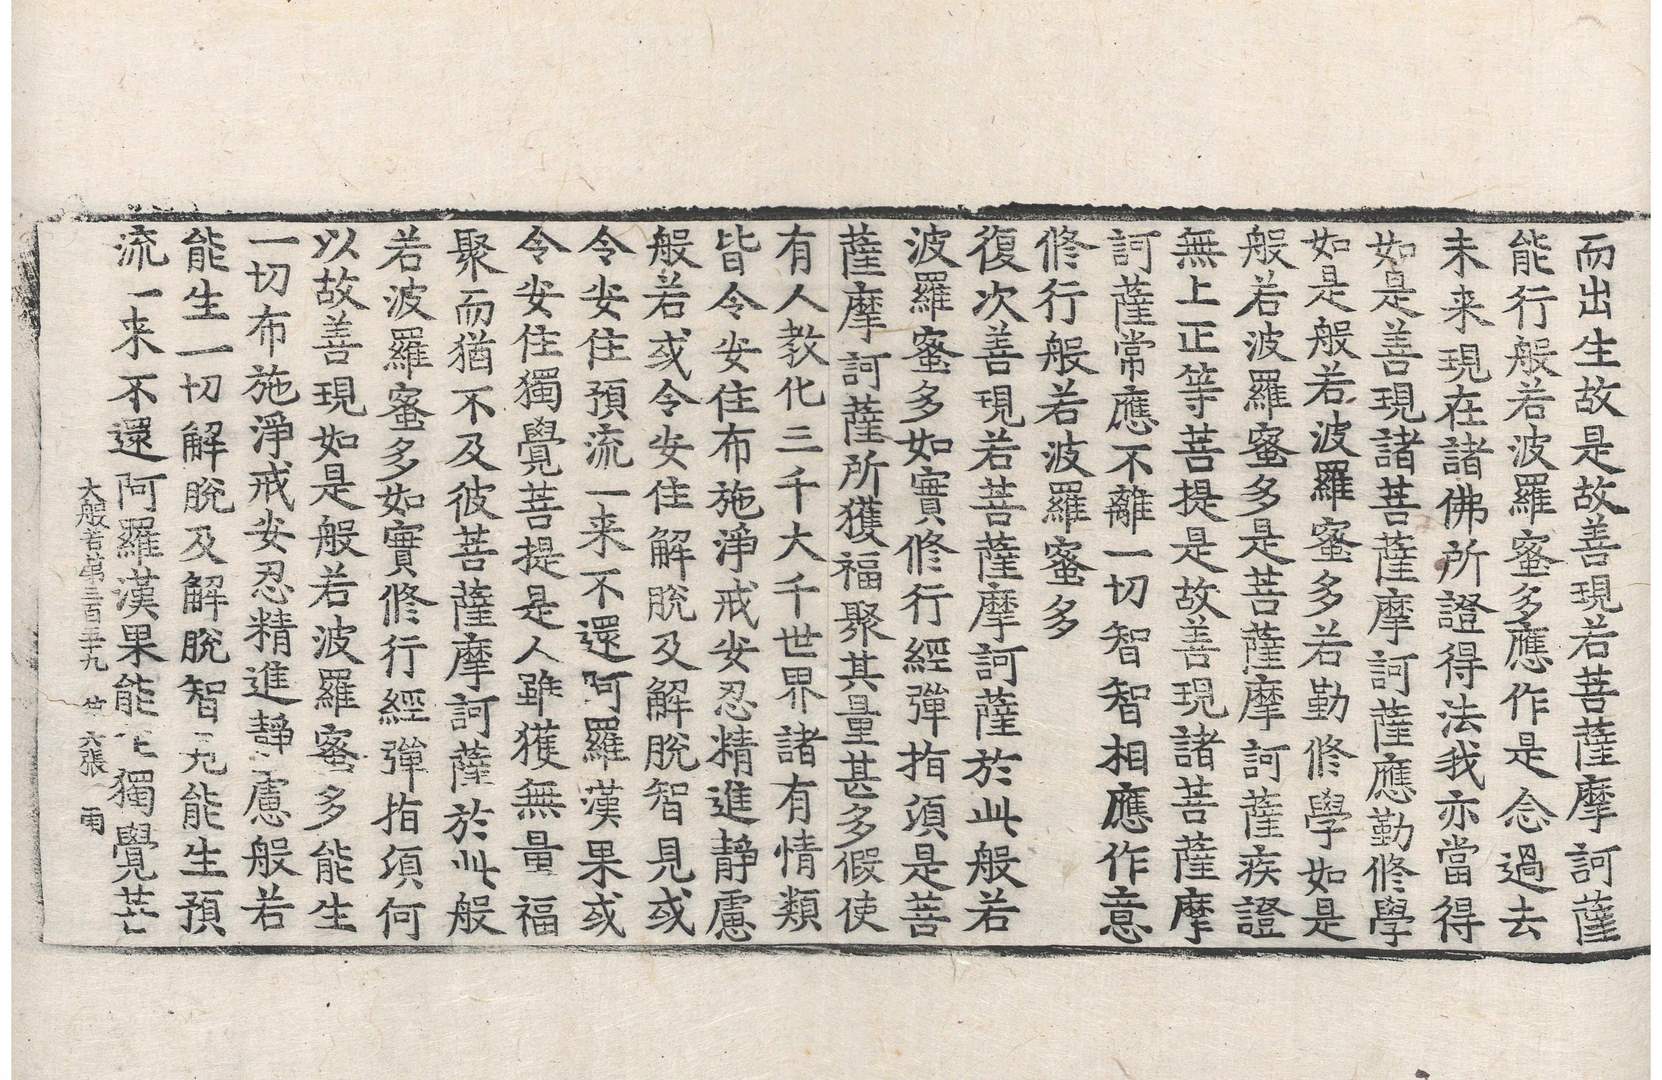 而出生故是故善現若菩薩摩訶薩
能行般若波羅蜜多應作是念過去
未来現在諸佛所證得法我亦當得
如是善現諸菩薩摩訶薩應勤修學
如是般若波羅蜜多若勤修學如是
般若波羅蜜多是菩薩摩訶薩疾證
無上正等菩提是故善現諸菩薩摩
訶薩常應不離一切智智相應作意
修行般若波羅蜜多
復次善現若菩薩摩訶薩於此般若
波羅蜜多如實修行經彈指須是菩
薩摩訶薩所獲福聚其量甚多假使
有人教化三千大千世界諸有情類
皆令安住布施淨戒安忍精進靜慮
般若或令安住解脫及解脫智見或
令安住預流一来不還阿羅漢果或
令安住獨覺菩提是人雖獲無量福
聚而猶不及彼菩薩摩訶薩於此般
若波羅蜜多如實修行經彈指須何
以故善現如是般若波羅蜜多能生
一切布施淨戒安忍精進靜慮般若
能生一切解脫及解脫智見能生預
流一来不還阿羅漢果能生獨覺菩
大般若第三百三十九 第六張 雨